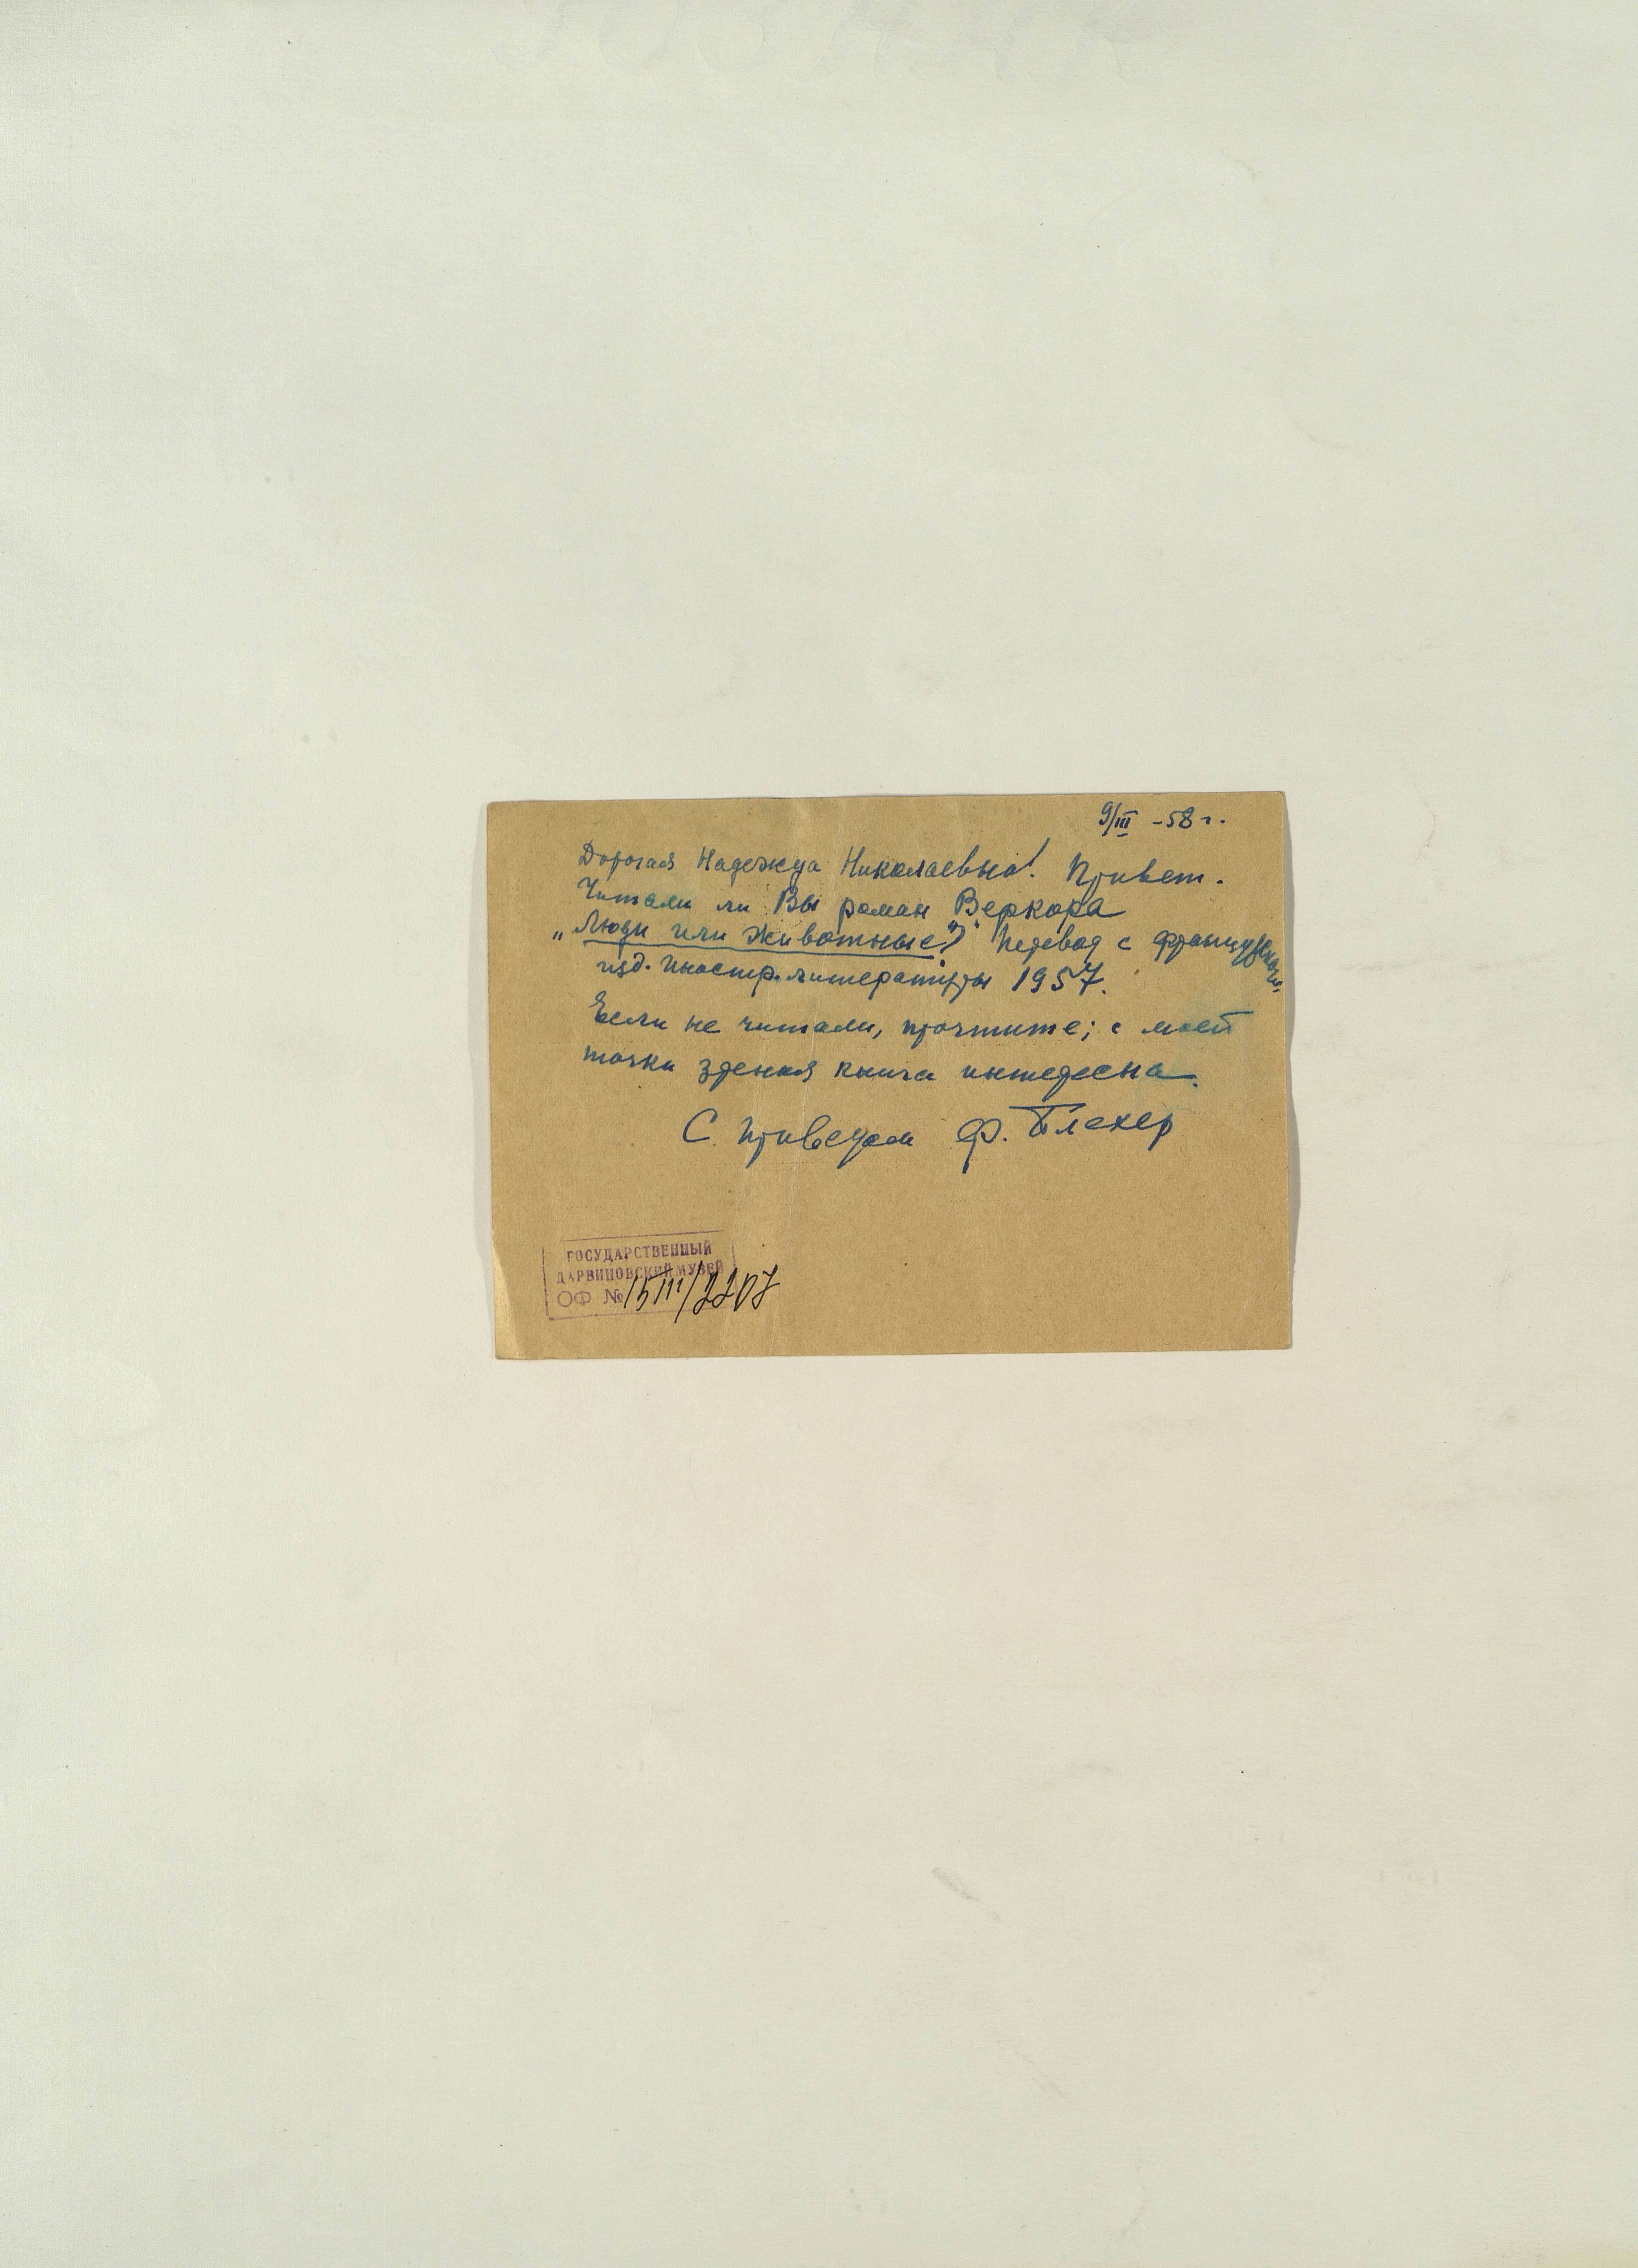 9/III - 58 г.
Дорогая Надежда Николаевна! Привет.
Читали ли Вы роман Веркора
„Люди или животные?" перевод с французского
изд. Иностр. литературы 1957.
Если не читали, прочтите; с моей
точки зрения книга интересна.
С приветом Ф. Блехер
ГОСУДАРСТВЕННЫЙ
ДАРВИНОВСКИЙ МУЗЕЙ
ОФ № 15111/2207